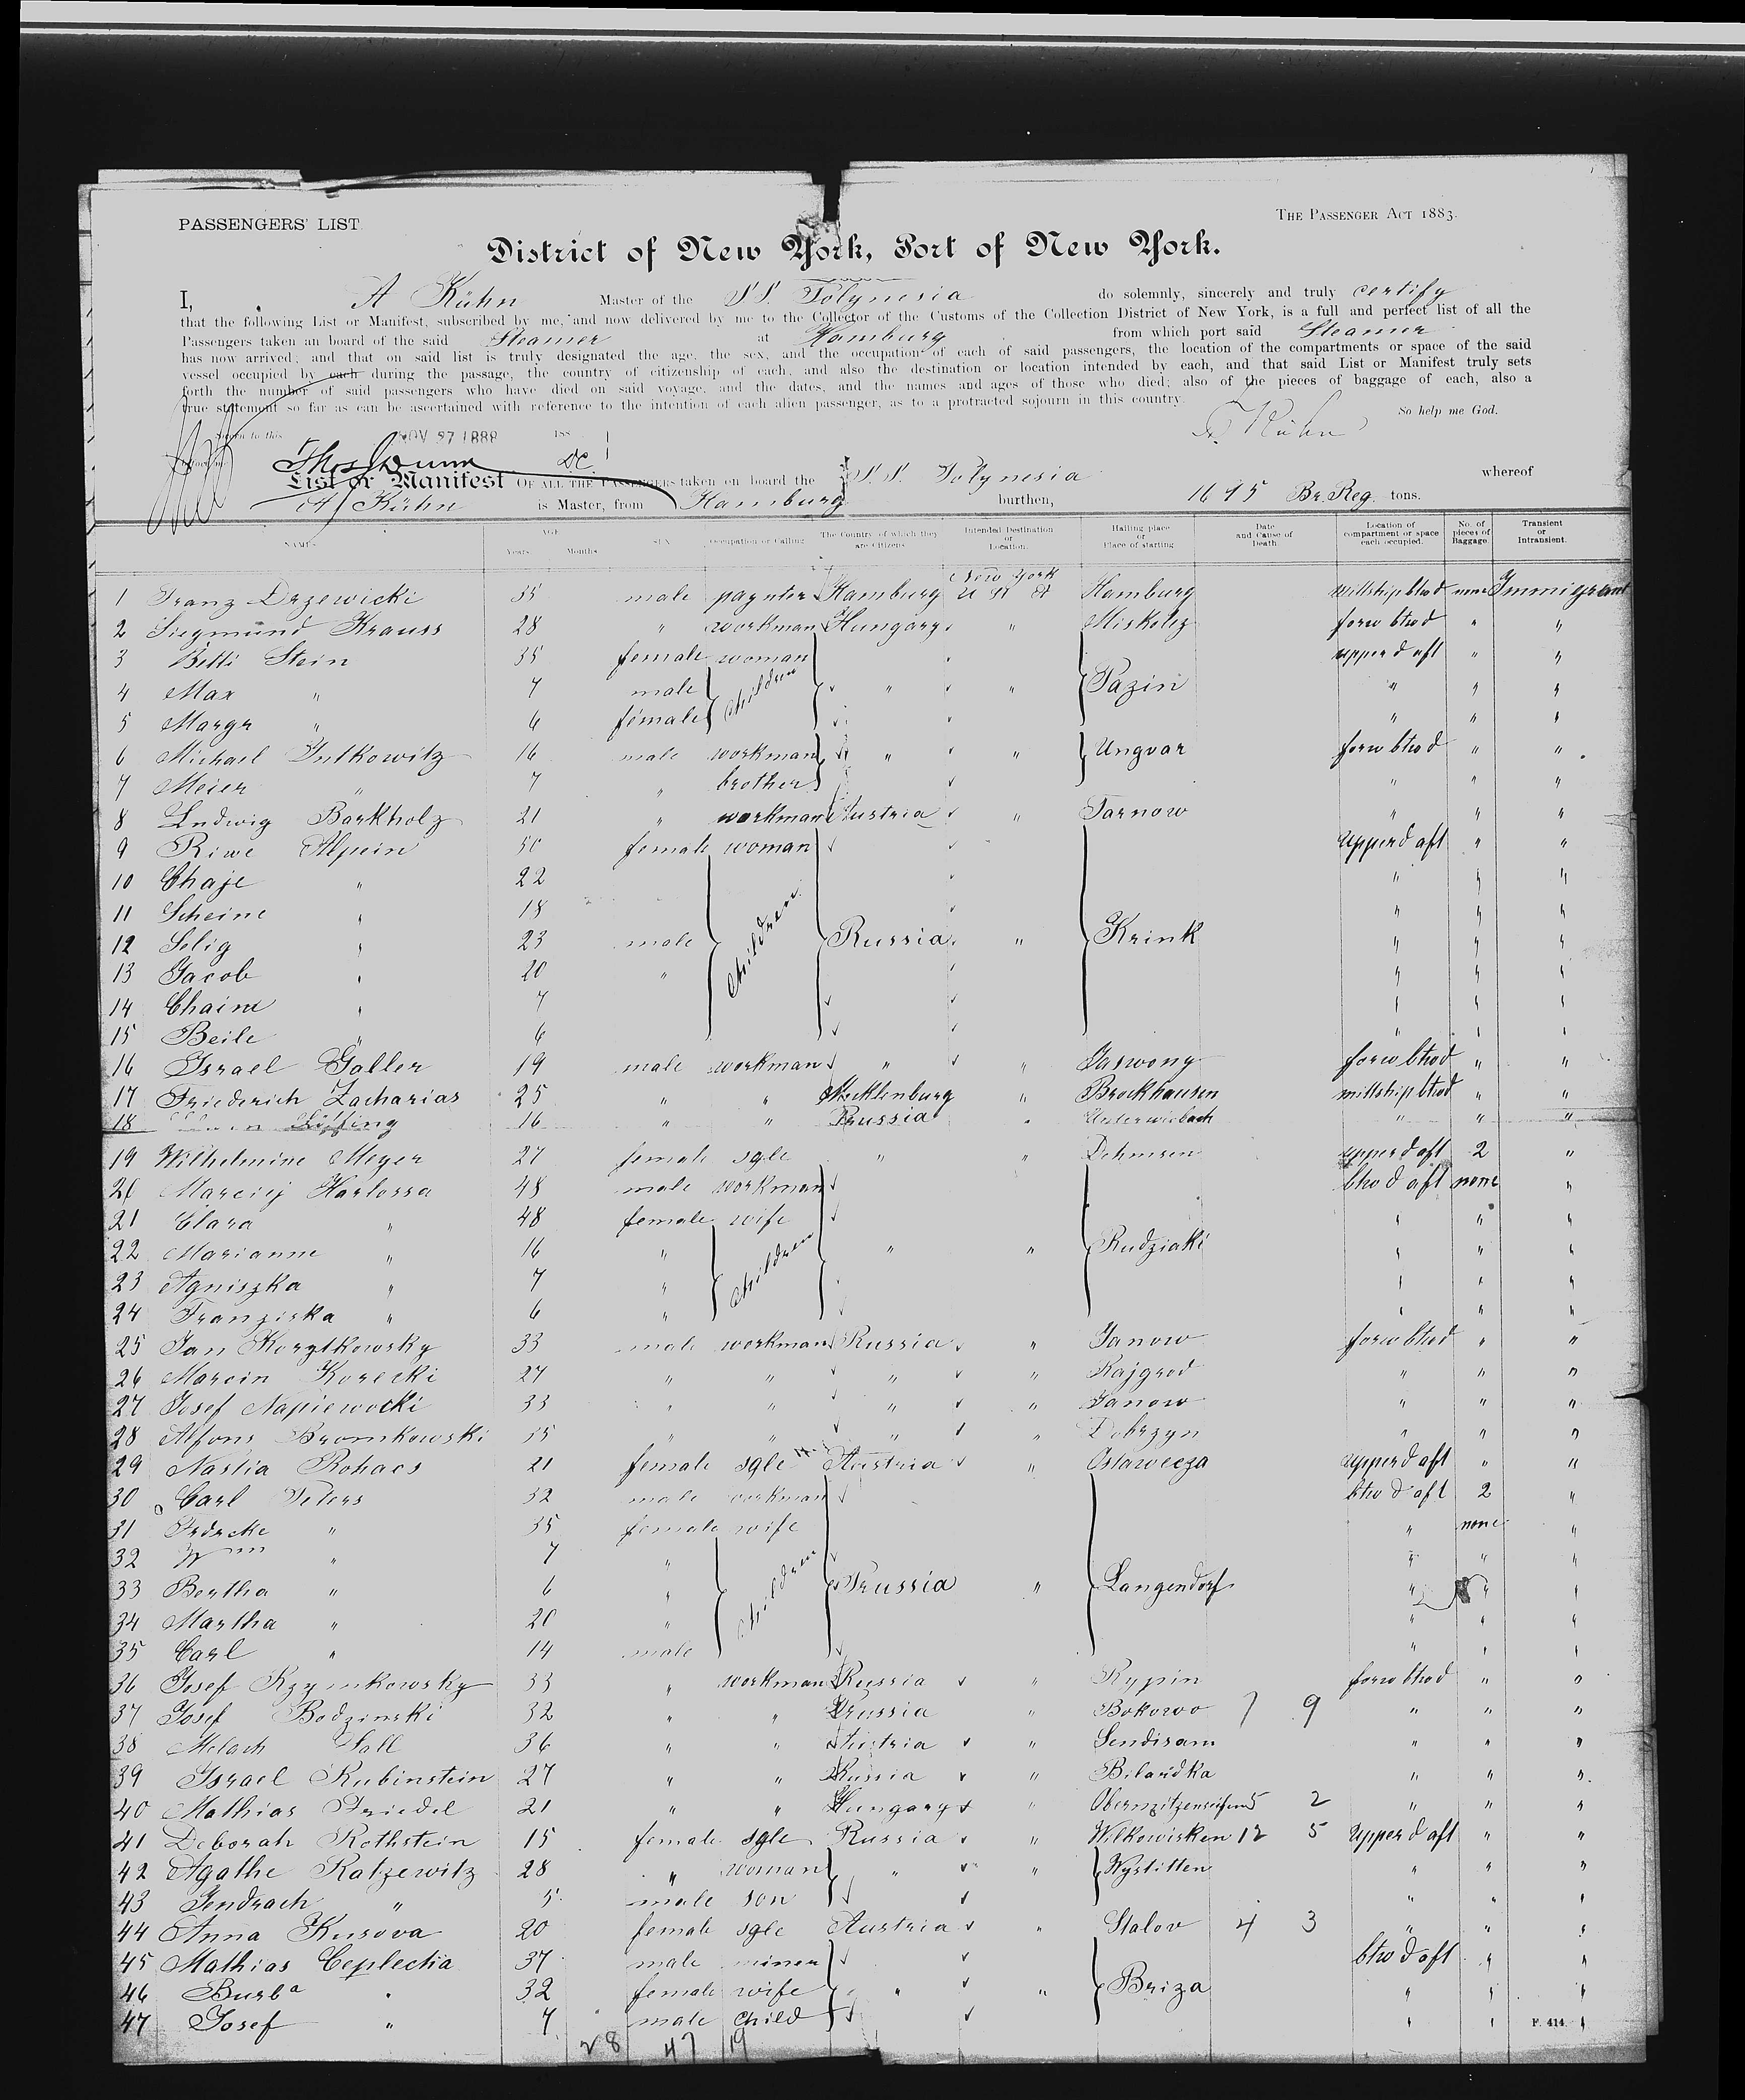 PASSENGERS' LIST.
THE PASSENGER ACT 1883.
District of New York, Port of New York.
I, A Kühn Master of the S.S. Polynesia do solemnly, sincerely and truly certify
that the following List or Manifest, subscribed by me, and now delivered by me to the Collector of the Customs of the Collection District of New York, is a full and perfect list of all the
Passengers taken on board of the said Steamer at Hamburg from which port said Steamer
has now arrived; and that on said list is truly designated the age, the sex, and the occupation of each of said passengers, the location of the compartments or space of the said
vessel occupied by each during the passage, the country of citizenship of each, and also the destination or location intended by each, and that said List or Manifest truly sets
forth the number of said passengers who have died on said voyage, and the dates, and the names and ages of those who died; also of the pieces of baggage of each, also a
true statement so far as can be ascertained with reference to the intention of each alien passenger, as to a protracted sojourn in this country.
So help me God.
A. Kühn
Sworn to this NOV 27 1888 188
Thos Dunn DC
List or Manifest OF ALL THE PASSENGERS taken on board the S.S. Polynesia whereof
A Kühn is Master, from Hamburg burthen, 1695 Br. Reg. tons.
NAMES AGE Years Months SEX Occupation or Calling The Country of which they are Citizens Intended Destination or Location. Hailing place or Place of starting Date and Cause of Death. Location of compartment or space each occupied. No. of pieces of Baggage Transient or Intransient.
New York
1 Franz Drzewicki 35 male paynter Hamburg U St A Hamburg mittship btwd none Immigrant
2 Siegmund Krauss 28 " workman Hungary " Miskolcz forw btwd " "
3 Betti Stein 35 female woman upper d aft " "
4 Max " 7 male children " " Pazin " " "
5 Margr " 6 female " " "
6 Michael Jutkowitz 16 male workman " " Ungvar forw btwd " "
7 Meier " 7 " brother " " "
8 Ludwig Barkholz 21 " workman Austria " Tarnow " " "
9 Riwe Alpein 50 female woman upper d aft " "
10 Chaje " 22 " " "
11 Scheine " 18 " " "
12 Selig " 23 male children Russia " Krink " " "
13 Jacob " 20 " " " "
14 Chaim " 7 " " "
15 Beile " 6 " " "
16 Israel Galler 19 male workman " " forw btwd " "
17 Friederich Zacharias 25 " " Mecklenburg " Brockhausen mittship btwd " "
18 16 " " Prussia " " " "
19 Wilhelmine Meyer 27 female sgle " " Dehmsen upper d aft 2 "
20 Marcij Harlossa 48 male workman btw d aft none "
21 Clara " 48 female wife " " "
22 Marianne " 16 " children " " Rudziaki " " "
23 Agniszka " 7 " " " "
24 Franziska " 6 " " " "
25 Jan Korytkowsky 33 male workman Russia " Janow forw btwd " "
26 Marcin Korecki 27 " " " " Rajgrod " " "
27 Josef Napiewocki 33 " " " " Janow " " "
28 Alfons Bromkowski 35 " " " " Dobrzyn " " "
29 Nastia Rohacs 21 female sgle Austria " Ostawecza upper d aft " "
30 Carl Peters 32 male workman btw d aft 2 "
31 Frdrcke " 35 female wife " none "
32 Wm " 7 " " " "
33 Bertha " 6 " children Prussia " Langendorf " " "
34 Martha " 20 " " " "
35 Carl " 14 male " " "
36 Josef Rzymkowsky 33 " workman Russia " Rypin forw btwd " "
37 Josef Bodzinski 32 " " Prussia " Bokowo 7 9 " " "
38 Melach Sall 36 " " Austria " Sendisam " " "
39 Israel Rubinstein 27 " " Russia " Bilaudka " " "
40 Mathias Friedel 21 " " Hungary " 2 " " "
41 Deborah Rothstein 15 female sgle Russia " Wilkowisken 12 5 upper d aft " "
42 Agathe Ratzewitz 28 " woman " " Wystitten " " "
43 Jendrach " 5 male son " " "
44 Anna Kusova 20 female sgle Austria " Stalov 4 3 " " "
45 Mathias Ceplecha 37 male miner btw d aft " "
46 Burba " 32 female wife " " Briza " " "
47 Josef " 7 male child " " "
28 47 19
F. 414.